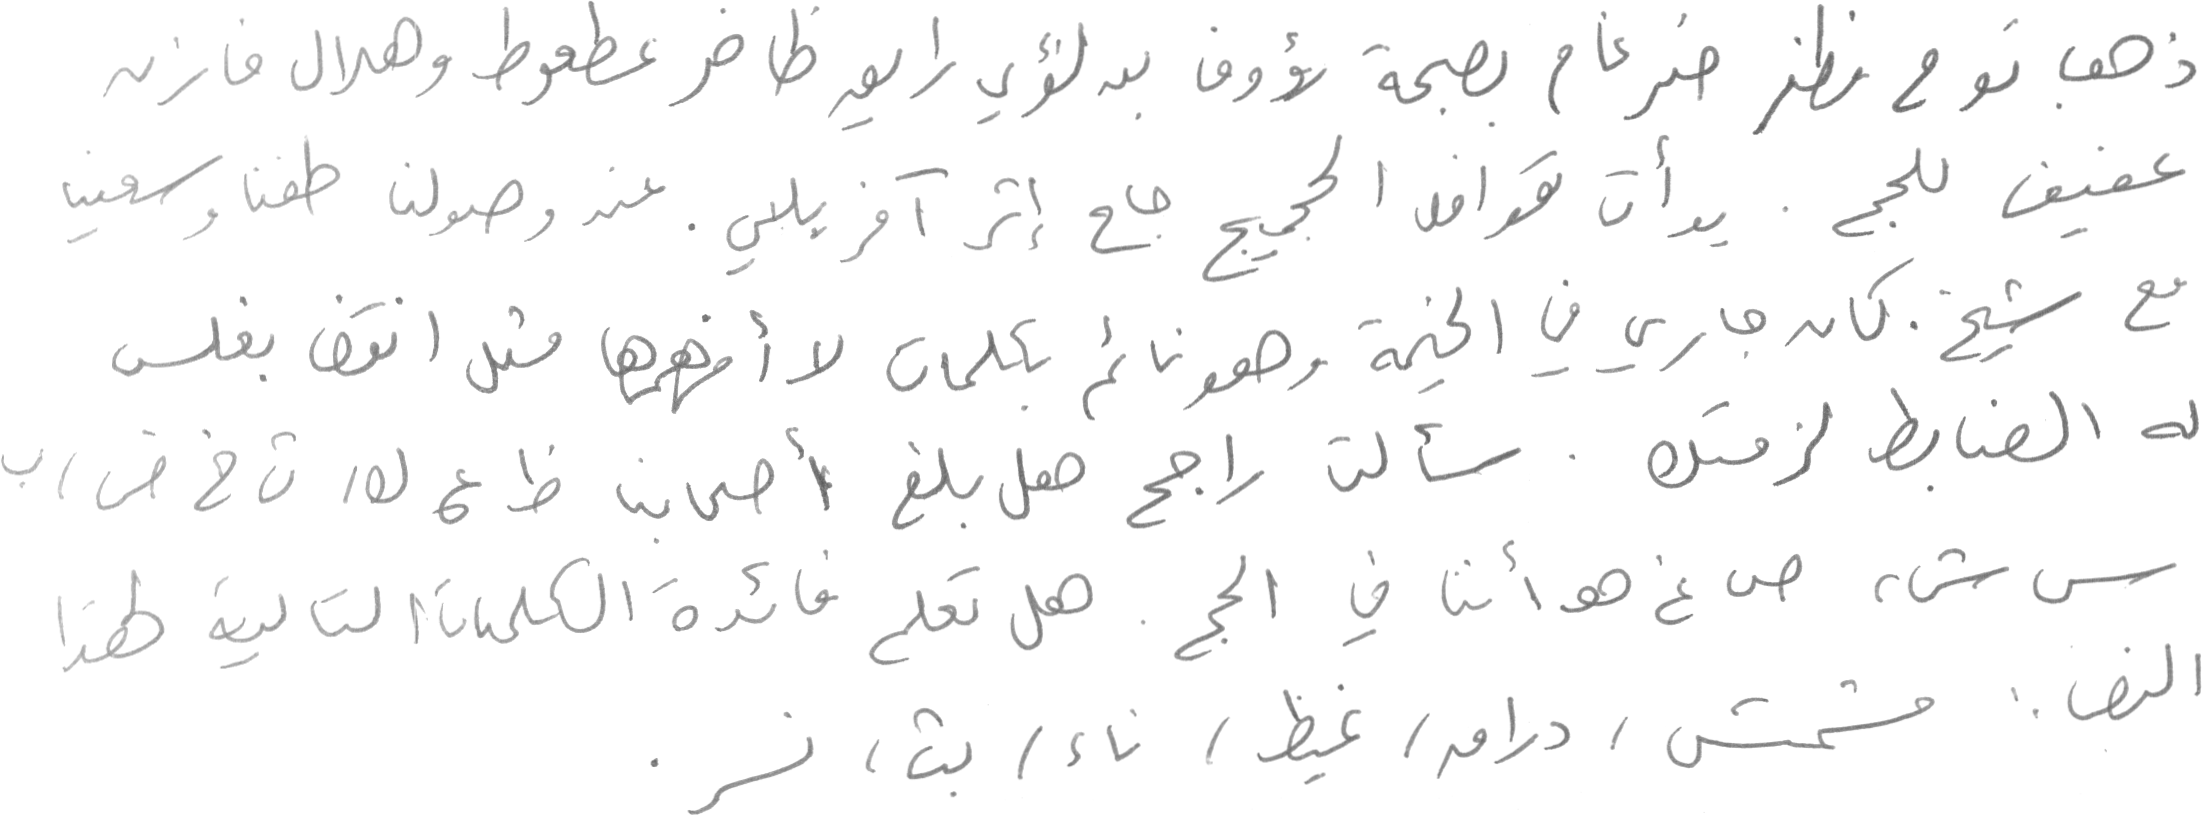 ذهب نوح مظفر ضرغام بصحبة رؤوف بن لؤي رايق ظافر عطعوط وهلال مازن
عفيف للحج . بدأت قوافل الحجيج حاج إثر آخر يلبي . عند وصولنا طفنا وسعينا
مع شيخ . كان جاري في الخيمة وهو نائم بكلمات لا أفهمها مثل انقض بغلس
له الضابط لزمتك . سألت راجح هل بلغ أصحابنا ظ ع ك ، ث خ ض ، ب
س ش ، ص غ هو أثنا في الحج . هل تعلم فائدة الكلمات التالية لهذا
النص : مشمش ، درامه ، غيظ ، ناء ، بث ، نسر .